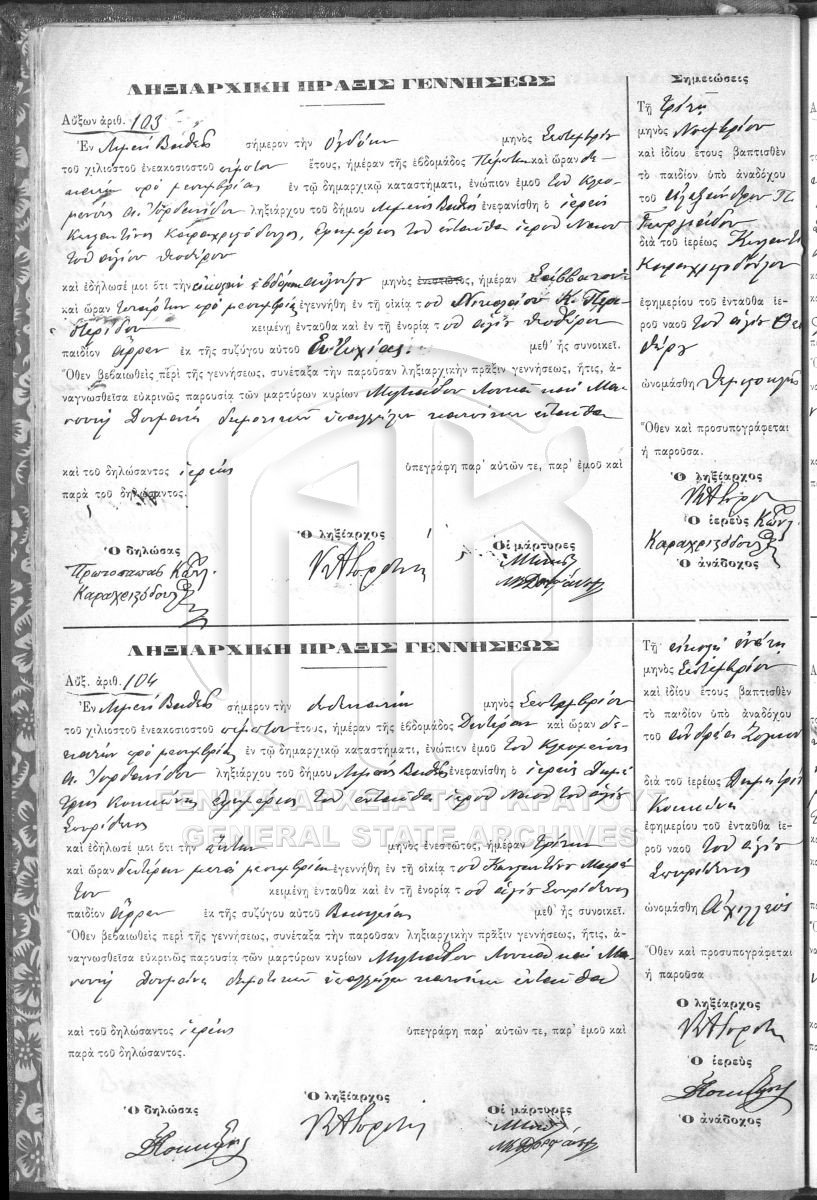 ΛΗΞΙΑΡΧΙΚΗ ΠΡΑΞΙΣ ΓΕΝΝΗΣΕΩΣ
Αὔξων ἀριθ. 103
Ἐν Λιμένι Βαθέος σήμερον τὴν ὀγδόην μηνὸς Σεπτεμβρίου
τοῦ χιλιοστοῦ ἐνεακοσιοστοῦ πέμπτου ἔτους, ἡμέραν τῆς ἑβδομάδος Πέμπτην καὶ ὥραν δε-
κάτην πρὸ μεσημβρίας ἐν τῷ δημαρχικῷ καταστήματι, ἐνώπιον ἐμοῦ τοῦ
ληξιάρχου τοῦ δήμου Λιμένος Βαθέος ἐνεφανίσθη ὁ ἱερεὺς
Κωνσταντῖνος Καραχριστόδουλος, ἐφημέριος τοῦ ἐνταῦθα ἱεροῦ Ναοῦ
τοῦ ἁγίου Θεοδώρου
καὶ ἐδήλωσέ μοι ὅτι τὴν εἰκοστὴν ἑβδόμην αὐγούστου μηνὸς ἐνεστῶτος, ἡμέραν Σάββατον
καὶ ὥραν τετάρτην πρὸ μεσημβρίας ἐγεννήθη ἐν τῇ οἰκίᾳ τοῦ Νικολάου Κ.
κειμένη ἐνταῦθα καὶ ἐν τῇ ἐνορίᾳ τοῦ ἁγίου Θεοδώρου
παιδίον ἄρρεν ἐκ τῆς συζύγου αὐτοῦ Εὐτυχίας μεθ' ἧς συνοικεῖ.
Ὅθεν βεβαιωθεὶς περὶ τῆς γεννήσεως, συνέταξα τὴν παροῦσαν ληξιαρχικὴν πρᾶξιν γεννήσεως, ἥτις, ἀ-
ναγνωσθεῖσα εὐκρινῶς παρουσίᾳ τῶν μαρτύρων κυρίων Μιλτιάδου Λουκᾶ καὶ Μα-
δημοτικῶν ὑπαλλήλων κατοίκων ἐνταῦθα
καὶ τοῦ δηλώσαντος ἱερέως ὑπεγράφη παρ' αὐτῶν τε, παρ' ἐμοῦ καὶ
παρὰ τοῦ δηλώσαντος.
Ὁ δηλώσας
Ὁ ληξίαρχος
Οἱ μάρτυρες
Πρωτοπαπᾶς Κων.
Καραχριστόδουλος
Σημειώσεις
Τῇ τρίτῃ
μηνὸς Νοεμβρίου
καὶ ἰδίου ἔτους βαπτισθὲν
τὸ παιδίον ὑπὸ ἀναδόχου
τοῦ Ἀλεξάνδρου Π.
Γεωργιάδου
διὰ τοῦ ἱερέως Κωνσταντ.
Καραχριστοδούλου
ἐφημερίου τοῦ ἐνταῦθα ἱε-
ροῦ ναοῦ τοῦ ἁγίου Θεο-
δώρου
ὠνομάσθη Θεμιστοκλῆς
Ὅθεν καὶ προσυπογράφεται
ἡ παροῦσα.
Ὁ ληξίαρχος
Ὁ ἱερεὺς Κων.
Καραχριστόδουλος
Ὁ ἀνάδοχος
ΛΗΞΙΑΡΧΙΚΗ ΠΡΑΞΙΣ ΓΕΝΝΗΣΕΩΣ
Αὔξ. ἀριθ. 104
Ἐν Λιμένι Βαθέος σήμερον τὴν δωδεκάτην μηνὸς Σεπτεμβρίου
τοῦ χιλιοστοῦ ἐνεακοσιοστοῦ πέμπτου ἔτους, ἡμέραν τῆς ἑβδομάδος Δευτέραν καὶ ὥραν δε-
κάτην πρὸ μεσημβρίας ἐν τῷ δημαρχικῷ καταστήματι, ἐνώπιον ἐμοῦ τοῦ
ληξιάρχου τοῦ δήμου Λιμένος Βαθέος ἐνεφανίσθη ὁ ἱερεὺς Δημή-
τριος Κοκκώνης ἐφημέριος τοῦ ἐνταῦθα ἱεροῦ Ναοῦ τοῦ ἁγίου
Σπυρίδωνος
καὶ ἐδήλωσέ μοι ὅτι τὴν ἕκτην μηνὸς ἐνεστῶτος, ἡμέραν Τρίτην
καὶ ὥραν δευτέραν μετὰ μεσημβρίαν ἐγεννήθη ἐν τῇ οἰκίᾳ τοῦ Κωνσταντίνου
κειμένη ἐνταῦθα καὶ ἐν τῇ ἐνορίᾳ τοῦ ἁγίου Σπυρίδωνος
παιδίον ἄρρεν ἐκ τῆς συζύγου αὐτοῦ Βασιλείας μεθ' ἧς συνοικεῖ.
Ὅθεν βεβαιωθεὶς περὶ τῆς γεννήσεως, συνέταξα τὴν παροῦσαν ληξιαρχικὴν πρᾶξιν γεννήσεως, ἥτις, ἀ-
ναγνωσθεῖσα εὐκρινῶς παρουσίᾳ τῶν μαρτύρων κυρίων Μιλτιάδου Λουκᾶ καὶ Μα-
δημοτικῶν ὑπαλλήλων κατοίκων ἐνταῦθα
καὶ τοῦ δηλώσαντος ἱερέως ὑπεγράφη παρ' αὐτῶν τε, παρ' ἐμοῦ καὶ
παρὰ τοῦ δηλώσαντος.
Ὁ δηλώσας
Ὁ ληξίαρχος
Οἱ μάρτυρες
Τῇ εἰκοστῇ ἐνάτῃ
μηνὸς Σεπτεμβρίου
καὶ ἰδίου ἔτους βαπτισθὲν
τὸ παιδίον ὑπὸ ἀναδόχου
τοῦ Ἀνδρέα
διὰ τοῦ ἱερέως Δημητρίου
Κοκκώνη
ἐφημερίου τοῦ ἐνταῦθα ἱε-
ροῦ ναοῦ τοῦ ἁγίου
Σπυρίδωνος
ὠνομάσθη Ἀχιλλεύς
Ὅθεν καὶ προσυπογράφεται
ἡ παροῦσα
Ὁ ληξίαρχος
Ὁ ἱερεὺς
Ὁ ἀνάδοχος
ΓΕΝΙΚΑ ΑΡΧΕΙΑ ΤΟΥ ΚΡΑΤΟΥΣ
GENERAL STATE ARCHIVES